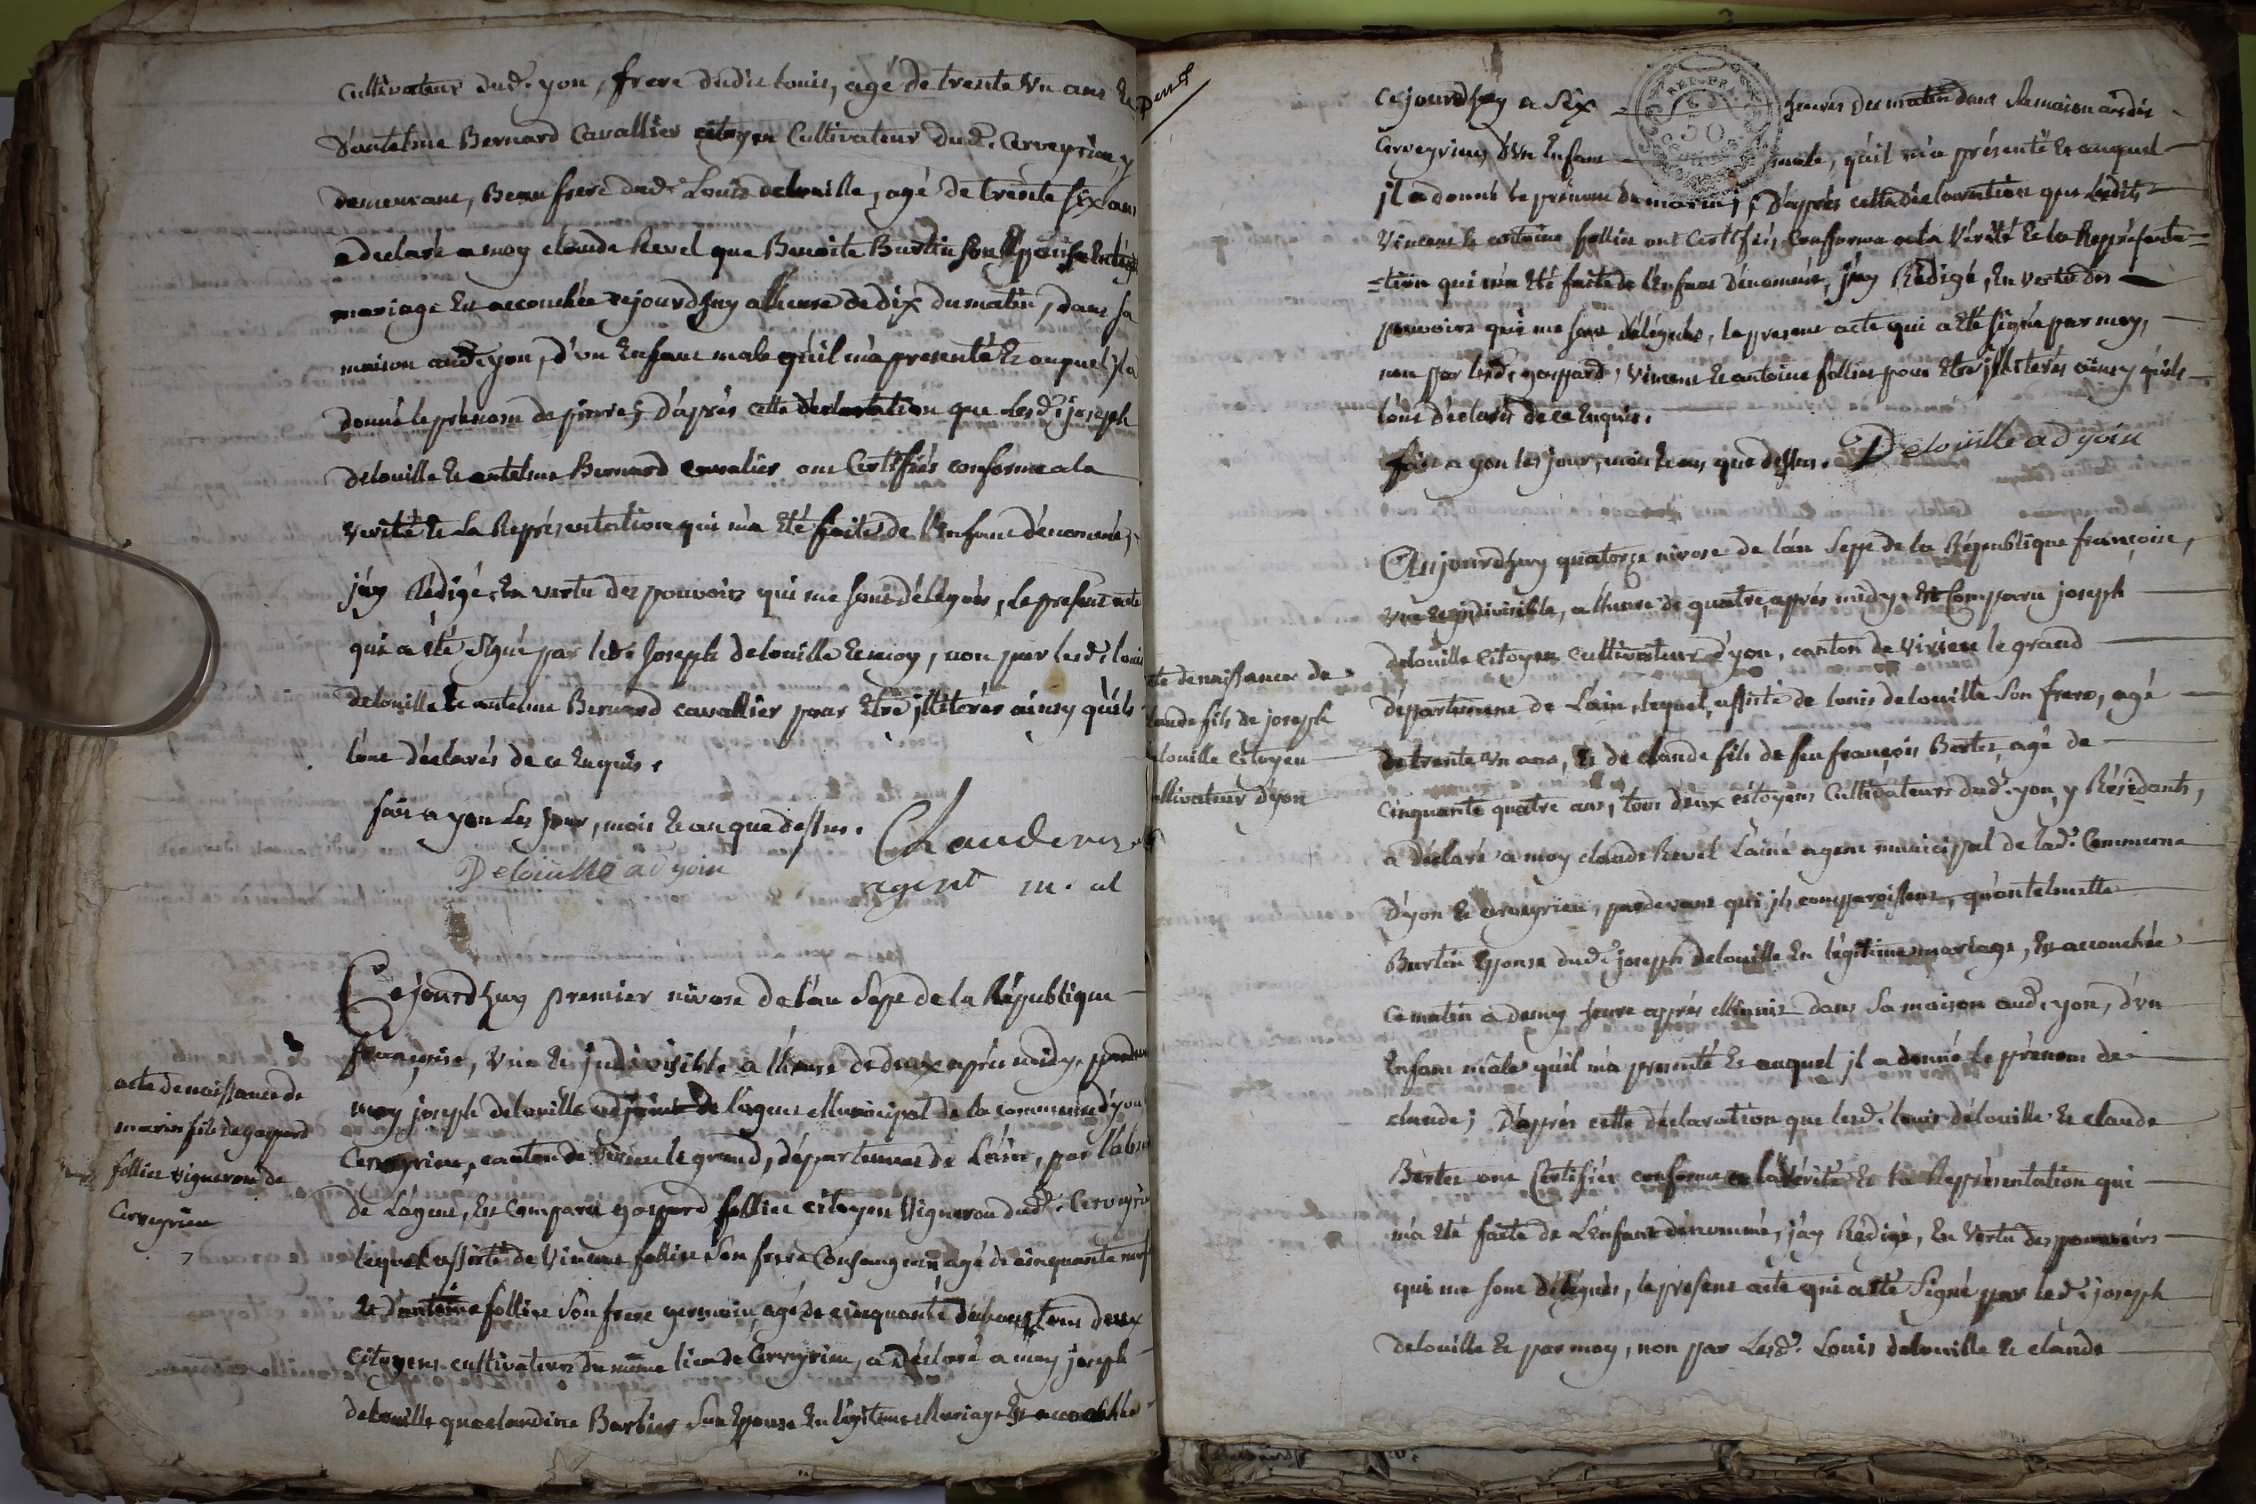 Cultivateur dud. yon, frere dudit Louis, agé de trente un ans Et
D'antelme Bernard Cavallier citoyen Cultivateur dud. Cerveyrieu, y
demeurant, Beau frere dud. Louis delouille, agé de trente six ans
a declaré a moy claude Revel que Benoite Burtin son Epouse En
mariage Est accouchée cejourd'huy a lheure de dix du matin, dans sa
maison aud. yon, d'un Enfant male qu'il m'a presenté Et auquel il a
donné le prénom de pierre; D'après cette déclaration que lesd. joseph
Delouille Et antelme Bernard cavalier ont Certifiés conforme a la
verité Et La Représentation qui m'a Eté faite de l'Enfant dénommé,
j'ay Rédigé, En vertu des pouvoirs qui me sont délégués, le present acte
qui a été signé par led. Joseph delouille Et moy, non par lesd. louis
delouille Et antelme Bernard cavallier pour Etre illiterés ainsy qu'ils
l'ont déclarés de ce Enquis.
fait a yon Les Jour, mois Et an que dessus.
Claude rev
Delouille ad yoin
agent m. al
acte de naissance de
marin fils de gaspard
follier vigneron de
Cerveyrieu
7
Cejourd'huy premier nivose de l'an Sept de la République
française, une Et indivisible a lheure de deux après midy, pardevant
moy joseph delouille adjoint de l'agent Municipal de la commune d'yon
Cerveyrieu, canton de virieu le grand, département de L'ain, par l'absence
de L'agent, Est Comparu gaspard follier citoyen Vigneron dud. Cerveyrieu
lequel assisté de Vincent follier Son frere Consanguin agé de cinquante neuf
Et d'antoine follier Son frere germain, agé de cinquante deux ans, tous deux
Citoyens cultivateurs du même lieu de Cerveyrieu, a Déclaré a moy joseph
delouille que claudine Barbier Son Epouse En légitime Mariage Est accouchée
cejourd'huy a Six heures du matin dans Sa maison aud.
Cerveyrieu, d'Un Enfant male, qu'il m'a présenté Et auquel
il a donné le prénom de marin; D'après cette déclaration que lesdits
Vincent Et antoine follier ont Certifiés Conforme a la Vérité Et la Représenta=
=tion qui m'a Eté faite de l'Enfant dénommé, j'ay Rédigé, En vertu des
pouvoirs qui me sont délégués, le present acte qui a Eté signé par moy,
non par lesd. gaspard, Vincent Et antoine follier pour Etre illiterés ainsy qu'ils
l'ont déclarés de ce Enquis.
fait a yon les jour, mois Et an que dessus. Delouille ad yoin
te de naissance de
laude fils de joseph
louille Citoyen
ltivateur d'yon
Aujourd'huy quatorze nivose de l'an Sept de la République française,
Une Et indivisible, a lheure de quatre après midy, Est Comparu joseph
delouille Citoyen cultivateur d'yon, canton de Virieu le grand
département de L'ain, lequel, assisté de louis delouille Son frere, agé
de trente un ans, Et de claude fils de feu françois Berter, agé de
cinquante quatre ans, tous deux citoyens Cultivateurs dud. yon, y Résidants,
a déclaré a moy claude Revel L'ainé agent municipal de lad. Commune
d'yon Et cerveyrieu, pardevant qui ils comparoissent, qu'antelmette
Burtin Epouse dud. joseph delouille En légitime mariage, Est accouchée
ce matin a demy heure après Minuit dans Sa maison aud. yon, d'un
Enfant mâle qu'il m'a presenté Et auquel il a donné le prénom de
claude; D'après cette déclaration que lesd. louis délouille Et claude
Berter ont Certifiés conforme a la Vérité Et la Représentation qui
m'a Eté faite de L'Enfant dénommé, j'ay Rédigé, En Vertu des pouvoirs
qui me sont délégués, le present acte qui a Eté Signé par led. joseph
Delouille Et par moy, non par Lesd. Louis delouille Et claude